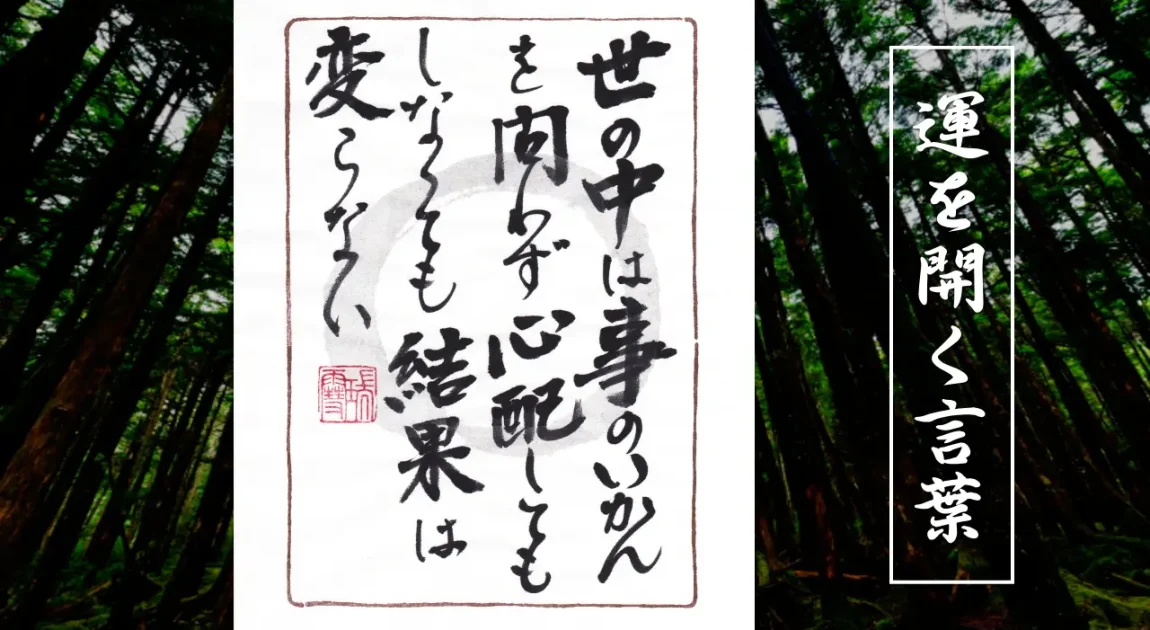 運を開く言葉
世の中は事のいかん
を問わず心配しても
しなくても結果は
変らない